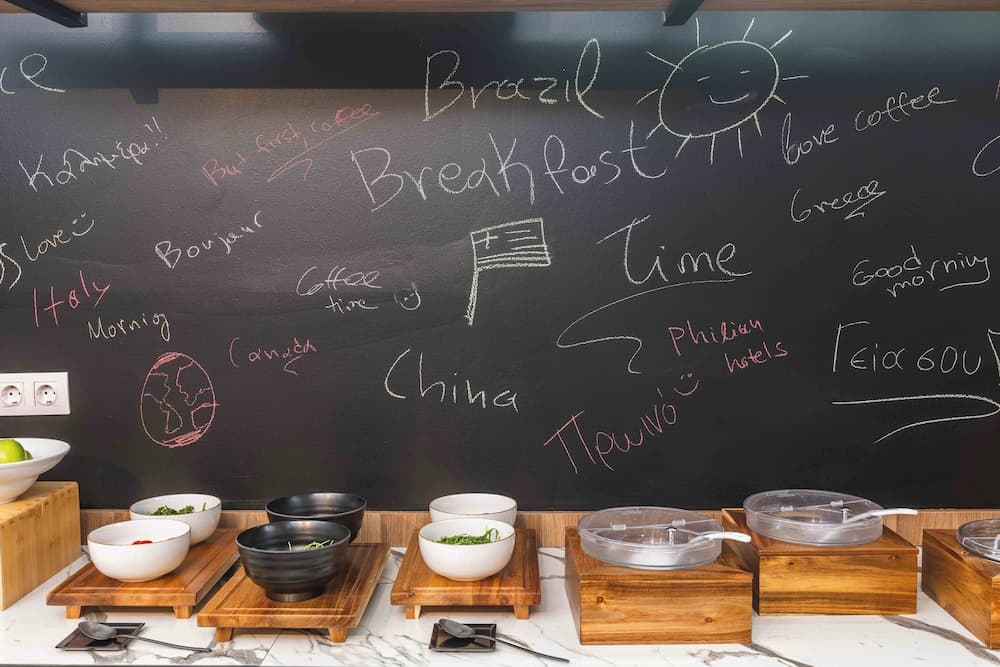 Brazil
Καλημέρα!!
But first coffee
Breakfast
Love coffee
Greece
love
Bonjour
Time
Coffee
time
Good
morning
Italy
Morning
Canada
Philian
hotels
Γεια σου
China
Πρωινό